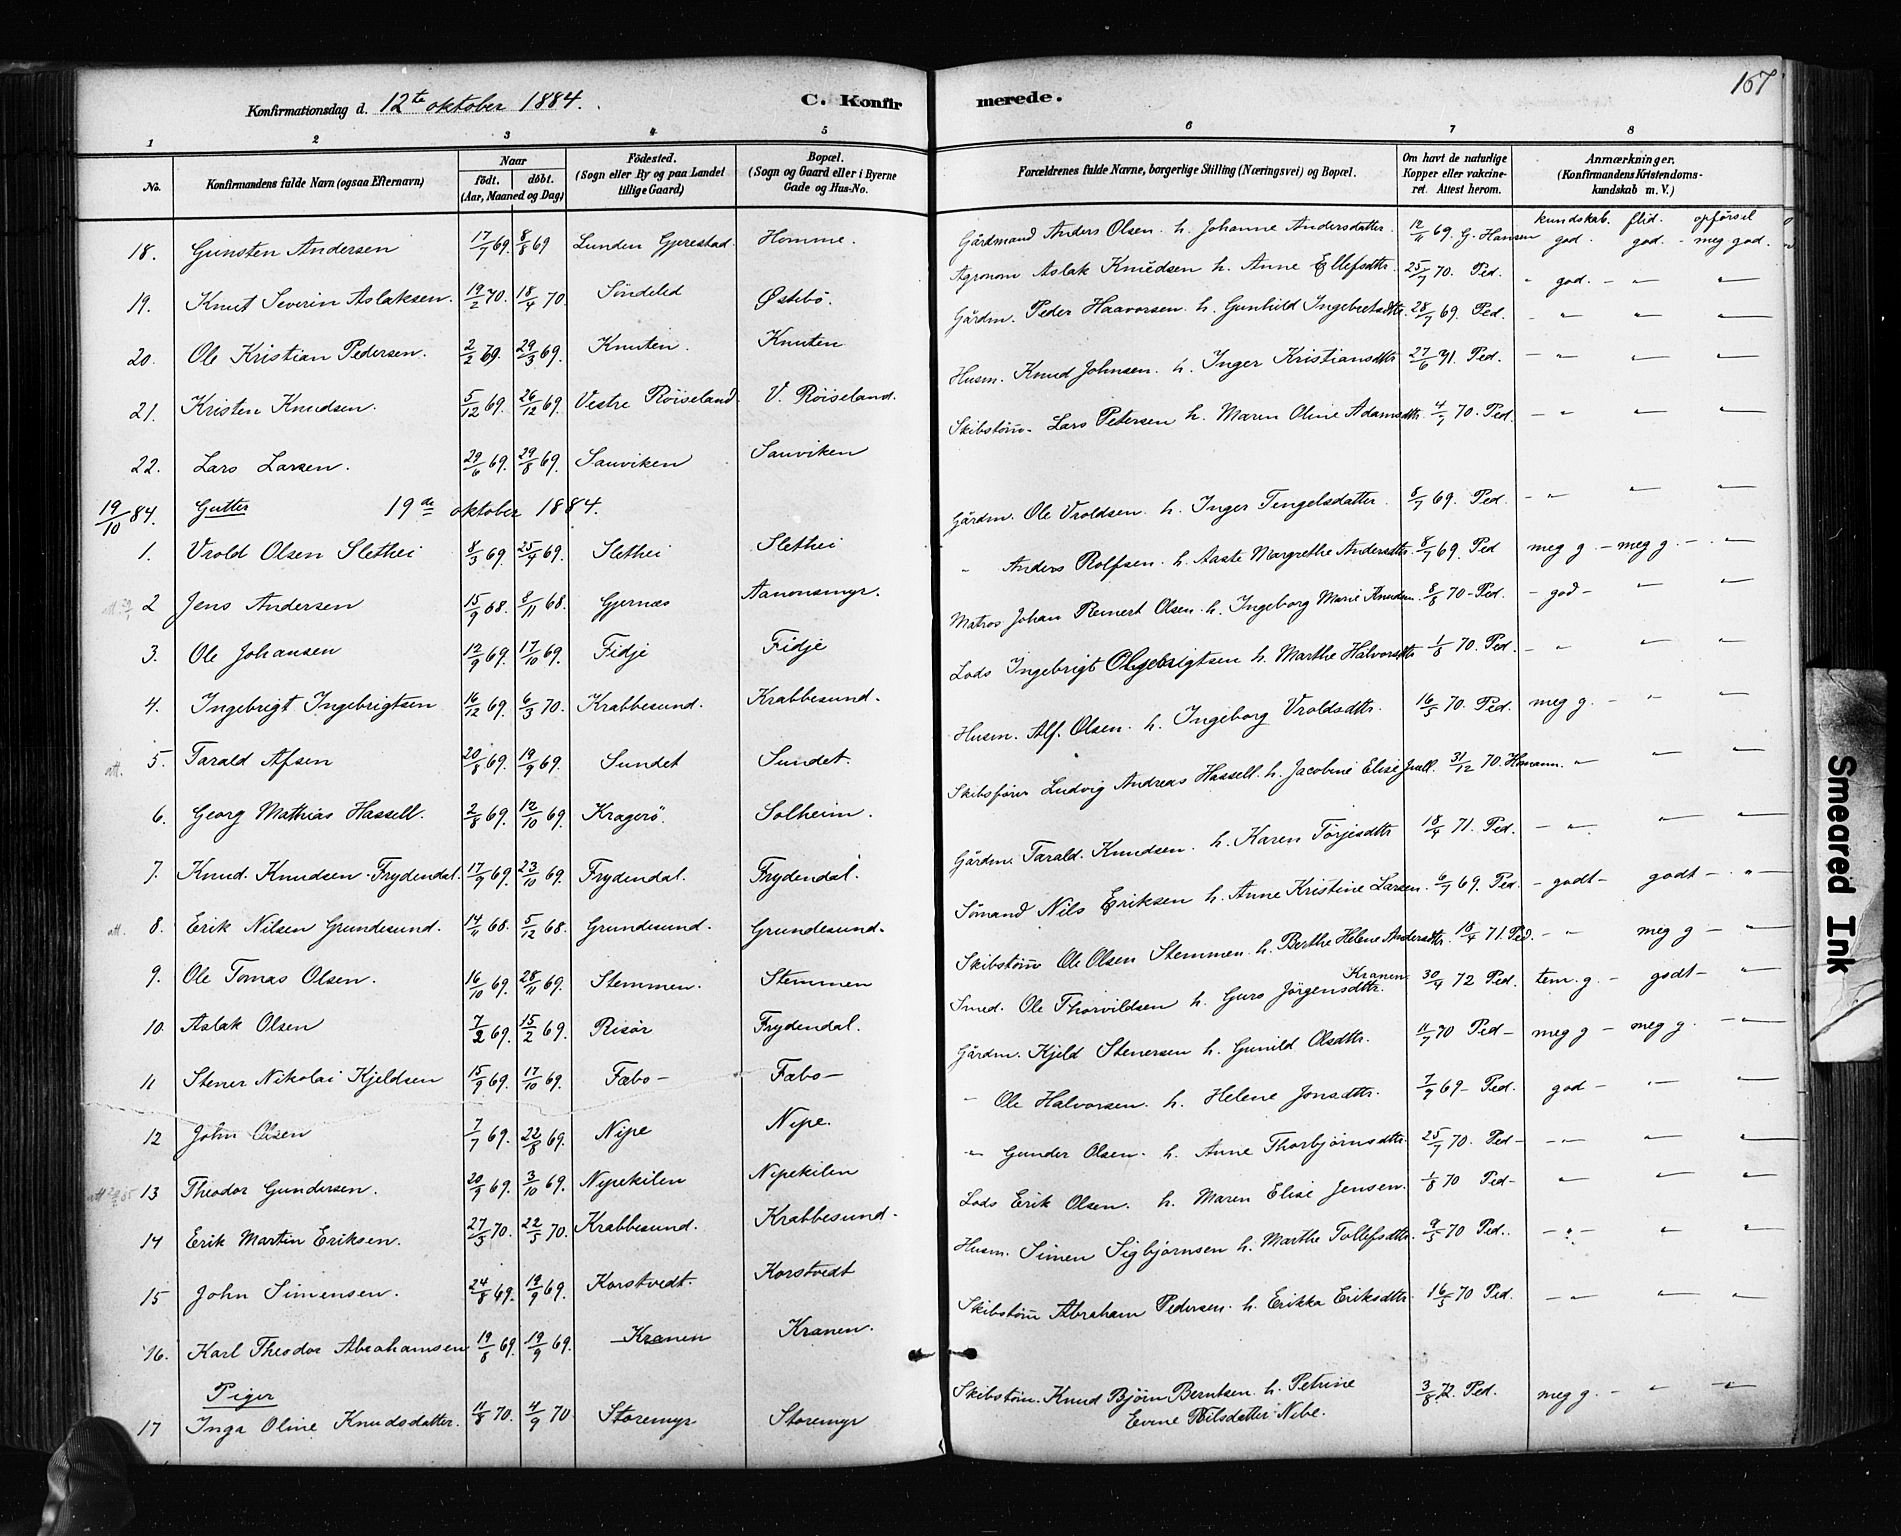 Konfirmationsdag d. 12te oktober 1884.
C. Konfirmerede.
167
1 2 3 4 5 6 7 8
No.
Konfirmandens fulde Navn (ogsaa Efternavn)
Naar
født. døbt.
(Aar, Maaned og Dag)
Födested.
(Sogn eller By og paa Landet tillige Gaard)
Bopæl.
(Sogn og Gaard eller i Byerne Gade og Hus-No.
Forældrenes fulde Navne, borgerlige Stilling (Næringsvei) og Bopæl.
Om havt de naturlige Kopper eller vakcineret. Attest herom.
Anmærkninger.
(Konfirmandens Kristendomskundskab m. V.)
kundskab. flid. opförsel
18. Gunsten Andersen 17/7 69. 8/8 69 Lunden Gjerestad. Homme. Gårdmand Anders Olsen. h. Johanne Andersdatter. 12/11 69. G. Hansen god. god. - meg god.
19. Knut Severin Aslaksen. 19/2 70. 18/4 70 Söndeled Østebö. Agronom Aslak Knudsen h. Anne Ellefsdttr. 25/7 70. Ped. " god. - " "
20. Ole Kristian Pedersen. 2/2 69. 29/3 69. Knuten. Knuten Gårdm. Peder Haavorsen. h. Gunhild Ingebretsdttr. 28/7 69. Ped. - " " "
21. Kristen Knudsen. 5/12 69. 26/12 69. Vestre Röiseland. V. Röiseland. Husm. Knud Johnsen. h. Inger Kristiansdttr 27/6 71. Ped. - " " "
22. Lars Larsen. 29/6 69. 29/8 69. Sauviken Sauviken Skibstöm. Lars Petersen h. Maren Oline Adamsdttr. 4/7 70. Ped. - " " "
19/10 84. Gutter 19de oktober 1884.
1. Vrold Olsen Slethei 8/3 69. 25/4 69. Slethei Slethei Gårdm. Ole Vroldsen. h. Inger Tengelsdatter. 8/7 69. Ped. - " " "
2 Jens Andersen 15/9 68. 8/11 68. Gjernæs Aanonsmyr. " Anders Rolfsen. h. Aaste Margrethe Andersdttr. 8/7 69. Ped meg g. - meg g. - "
3. Ole Johansen 12/9 69. 17/10 69. Fidje Fidje Matros Johan Reinert Olsen. h. Ingeborg Marie Knudsen. 8/8 70 - Ped. - god - " "
4. Ingebrigt Ingebrigtsen 16/12 69. 6/3 70. Krabbesund. Krabbesund. Lods Ingebrigt h. Marthe Halvorsdttr 1/8 70. Ped. - " " "
att. 5. Tarald Afsen 20/8 69. 19/9 69. Sundet Sundet. Husm. Alf. Olsen. h. Ingeborg Vroldsdttr. 16/5 70. Ped. meg g. - " "
6. Georg Mathias Hassell. 2/8 69. 12/10 69. Kragerö. Solheim. Skibsförer Ludvig Andreas Hassell. h. Jacobine Elise Juell. 31/12 70. Homann. " " "
7. Knud. Knudsen. Frydendal. 17/9 69. 23/10 69. Frydendal. Frydendal. Gårdm. Tarald. Knudsen. h. Karen Törjesdttr 18/4 71. Ped. - " " "
att. 8. Erik Nilsen Grundesund. 14/11 68. 5/12 68. Grundesund. Grundesund. Sömand Nils Eriksen h. Anne Kristine Larsen. 6/7 69. Ped. - godt - godt - "
9. Ole Tomas Olsen. 16/10 69. 28/11 69. Stemmen. Stemmen Skibstöm Ole Olsen Stemmen. h. Berthe Helene Andersdttr. 18/4 71. Ped. - " meg g - "
10. Aslak Olsen 7/2 69. 15/2 69. Risör Frydendal. Smed. Ole Thorvildsen h. Guro Jörgensdttr. Kranen 30/4 72 Ped. tem. g. - godt - "
11 Stener Nikolai Kjeldsen 15/9 69. 17/10 69. Fæbo - Fæbo - Gårdm. Kjeld Stenersen h. Gunild Olsdttr. 11/7 70 Ped - meg g - meg g. - "
12 John Olsen 7/7 69. 22/8 69. Nipe Nipe. " Ole Halvorsen. h. Helene Jonsdttr. 7/9 69 - Ped. god - " "
13 Theodor Gundersen. 20/9 69. 3/10 69. Nipekilen Nipekilen " Gunder Olsen. h. Anne Thorbjörnsdttr. 25/7 70. Ped - - " " "
14 Erik Martin Eriksen. 27/3 70. 22/5 70. Krabbesund. Krabbesund. Lods Erik Olsen. h. Maren Elise Jensen. 1/8 70 Ped - " " "
15 John Simensen. 24/8 69. 19/9 69. Korstvedt. Korstvedt Husm. Simen Sigbjörnsen h. Marthe Tollefsdttr. 9/5 70 Ped. - " - " "
16. Karl Theodor Abrahamsen 19/8 69. 19/9 69. Kranen Kranen. Skibstöm Abraham Pedersen. h. Erikka Eriksdttr. 16/5 70 Ped. - " " "
Piger
17 Inga Oline Knudsdatter. 11/8 70. 4/9 70 Storemyr Storemyr Skibstöm. Knud Björn Berntsen. h. Petrine 3/8 72. Ped. meg g. - " "
Evine Nilsdatter Nibe.
Smeared Ink